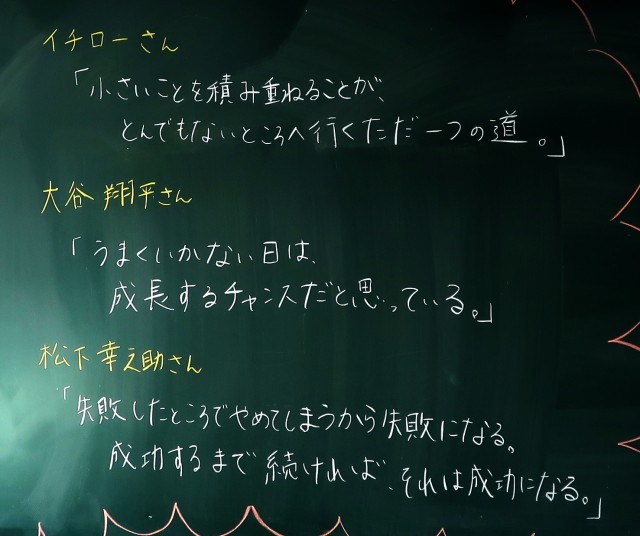 イチローさん
「小さいことを積み重ねることが、
とんでもないところへ行くただ一つの道。」
大谷翔平さん
「うまくいかない日は、
成長するチャンスだと思っている。」
松下幸之助さん
「失敗したところでやめてしまうから失敗になる。
成功するまで続ければ、それは成功になる。」